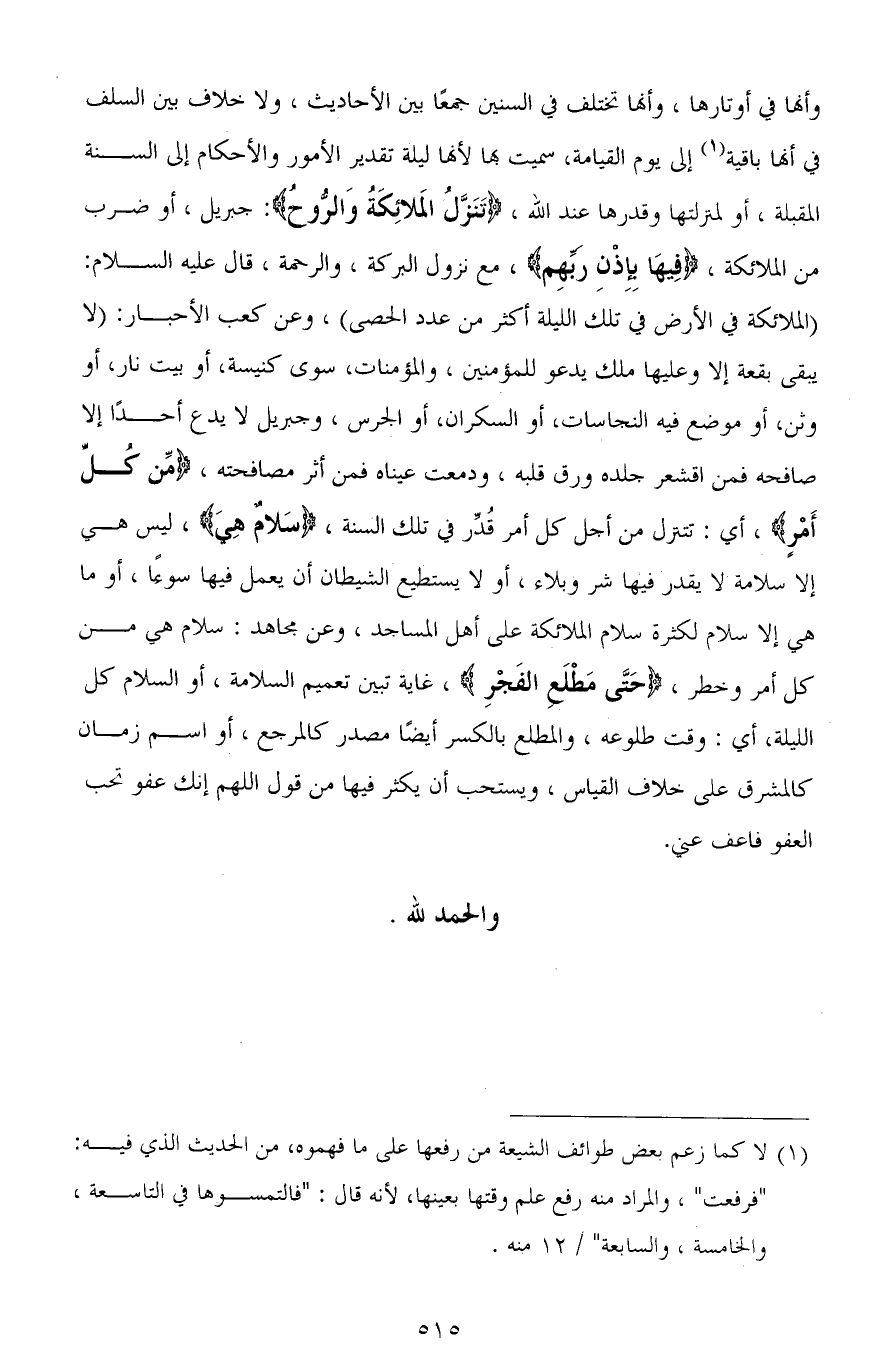 وأنها في أوتارها ، وأنها تختلف في السنين جمعًا بين الأحاديث ، ولا خلاف بين السلف
في أنها باقية(١) إلى يوم القيامة، سميت بها لأنها ليلة تقدير الأمور والأحكام إلى السنة
المقبلة ، أو لمنزلتها وقدرها عند الله ، ﴿تَنَزَّلُ المَلائِكَةُ وَالرُّوحُ﴾: جبريل ، أو ضرب
من الملائكة ، ﴿فِيهَا بِإِذْنِ رَبِّهِم﴾ ، مع نزول البركة ، والرحمة ، قال عليه السلام:
(الملائكة في الأرض في تلك الليلة أكثر من عدد الحصى) ، وعن كعب الأحبار: (لا
يبقى بقعة إلا وعليها ملك يدعو للمؤمنين ، والمؤمنات، سوى كنيسة، أو بيت نار، أو
وثن، أو موضع فيه النجاسات، أو السكران، أو الجرس ، وجبريل لا يدع أحدًا إلا
صافحه فمن اقشعر جلده ورق قلبه ، ودمعت عيناه فمن أثر مصافحته ، ﴿مِّن كُلِّ
أَمْرٍ﴾ ، أي : تتنزل من أجل كل أمر قُدِّر في تلك السنة ، ﴿سَلامٌ هِيَ﴾ ، ليس هي
إلا سلامة لا يقدر فيها شر وبلاء ، أو لا يستطيع الشيطان أن يعمل فيها سوءًا ، أو ما
هي إلا سلام لكثرة سلام الملائكة على أهل المساجد ، وعن مجاهد : سلام هي من
كل أمر وخطر ، ﴿حَتَّى مَطْلَعِ الفَجْرِ ﴾ ، غاية تبين تعميم السلامة ، أو السلام كل
الليلة، أي : وقت طلوعه ، والمطلع بالكسر أيضًا مصدر كالمرجع ، أو اسم زمان
كالمشرق على خلاف القياس ، ويستحب أن يكثر فيها من قول اللهم إنك عفو تحب
العفو فاعف عني.
والحمد لله .
(١) لا كما زعم بعض طوائف الشيعة من رفعها على ما فهموه، من الحديث الذي فيه:
"فرفعت" ، والمراد منه رفع علم وقتها بعينها، لأنه قال : "فالتمسوها في التاسعة ،
والخامسة ، والسابعة" / ١٢ منه .
٥١٥